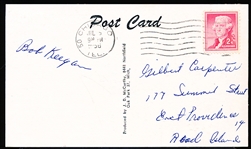 Post Card
Bob Keegan
Gilbert Carpenter
177 Summit Street
East Providence 14
Rhode Island
Produced by J. D. McCarthy,
Oak Park 37, Mich.